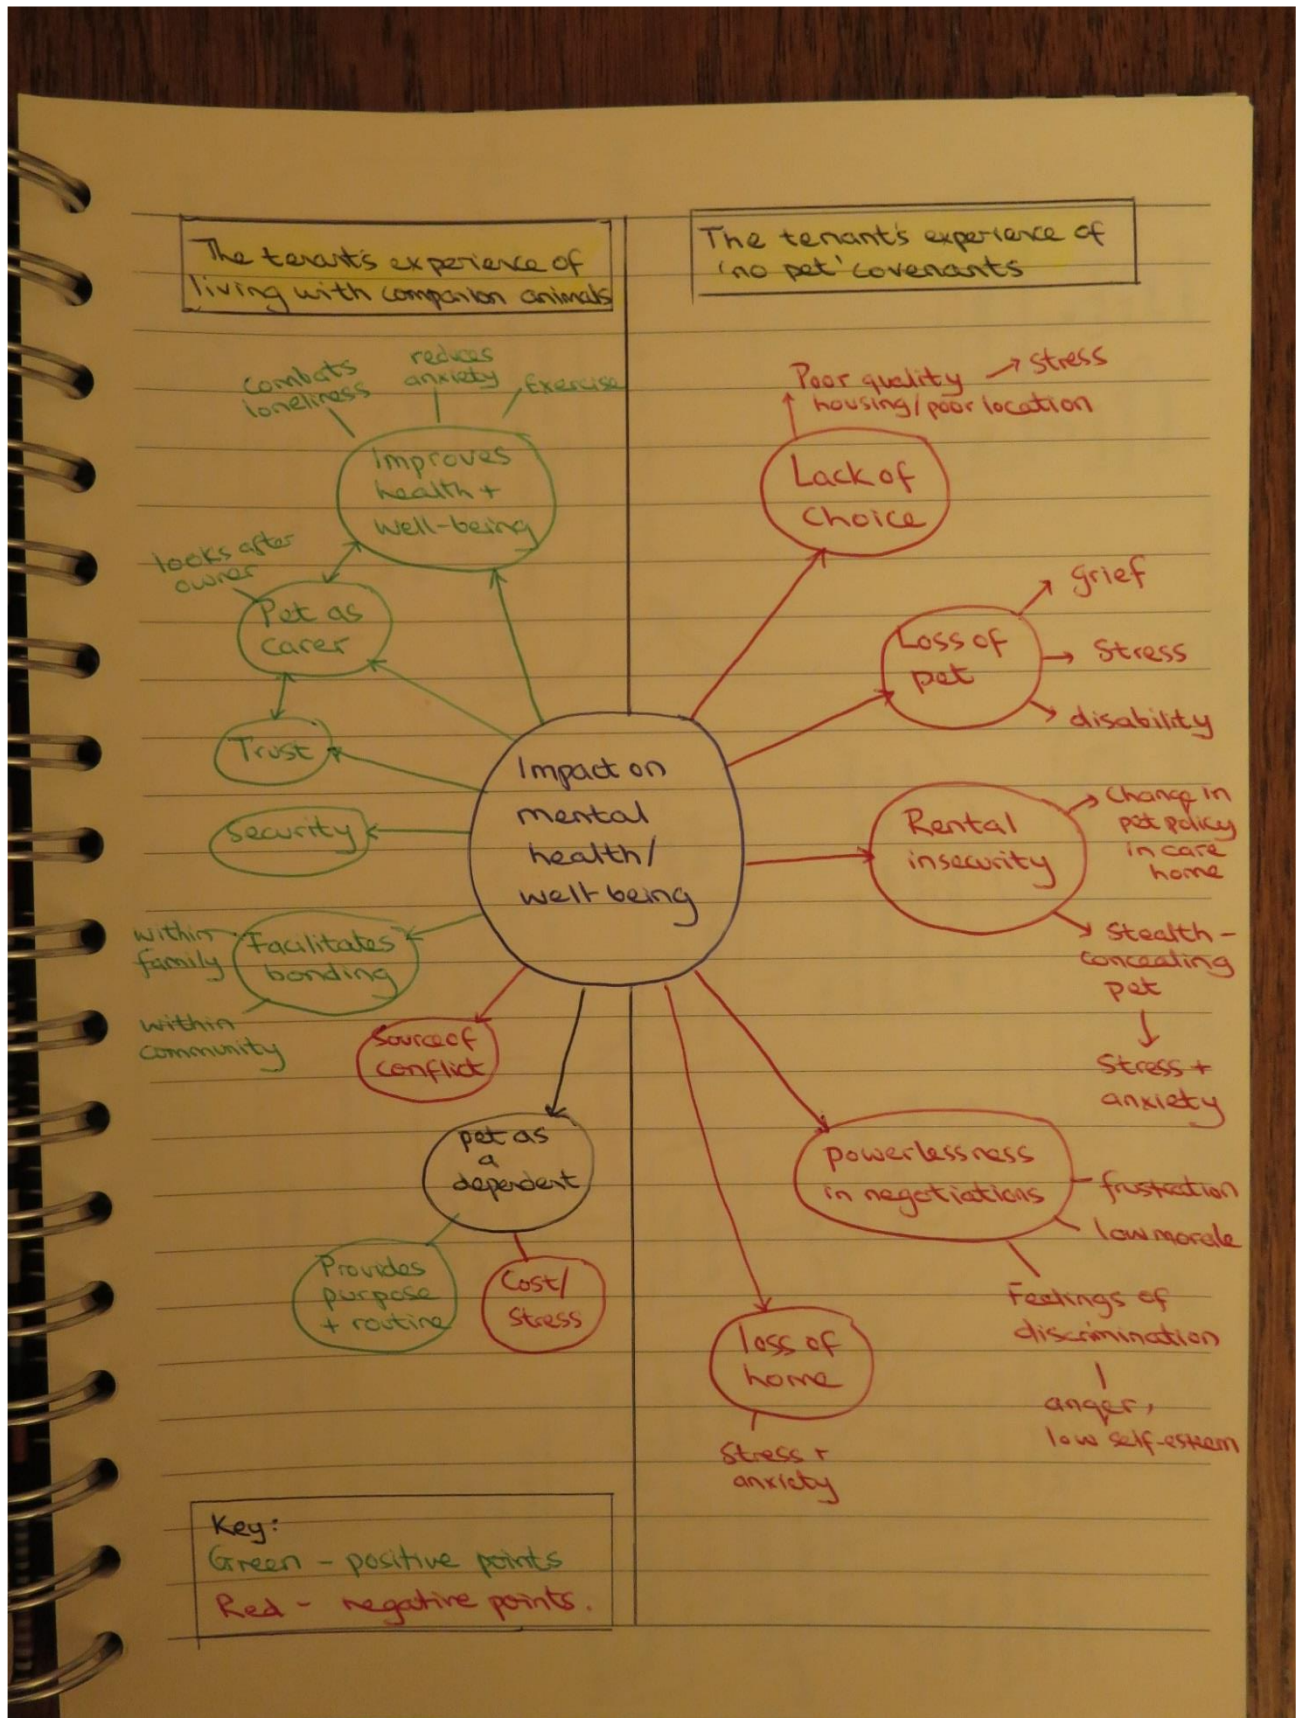 The tenant's experience of
living with companion animals
The tenant's experience of
'no pet' covenants
combats
loneliness
reduces
anxiety
Exercise
Improves
health +
well-being
looks after
owner
Pet as
carer
Trust
Security
within
family
Facilitates
bonding
within
community
Source of
conflict
pet as
a
dependent
Provides
purpose
+ routine
Cost/
Stress
Impact on
mental
health/
well-being
Poor quality
housing/poor location
Stress
Lack of
Choice
Loss of
pet
grief
Stress
disability
Rental
insecurity
Change in
pet policy
in care
home
Stealth -
concealing
pet
Stress +
anxiety
powerlessness
in negotiations
frustration
low morale
Feelings of
discrimination
anger,
low self-esteem
loss of
home
Stress +
anxiety
Key:
Green - positive points
Red - negative points.